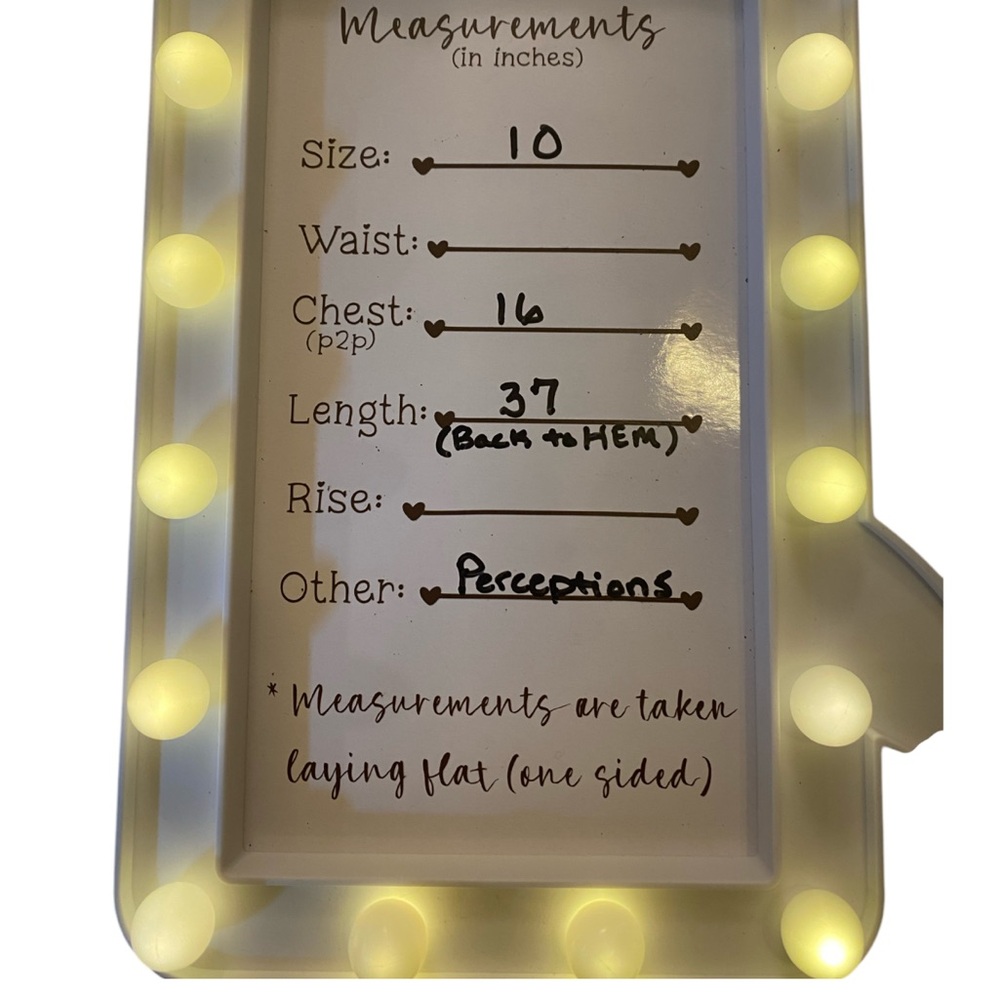 Measurements
(in inches)
Size: 10
Waist:
Chest: 16
(p2p)
Length: 37
(Back to HEM)
Rise:
Other: Perceptions
* Measurements are taken
laying flat (one sided)